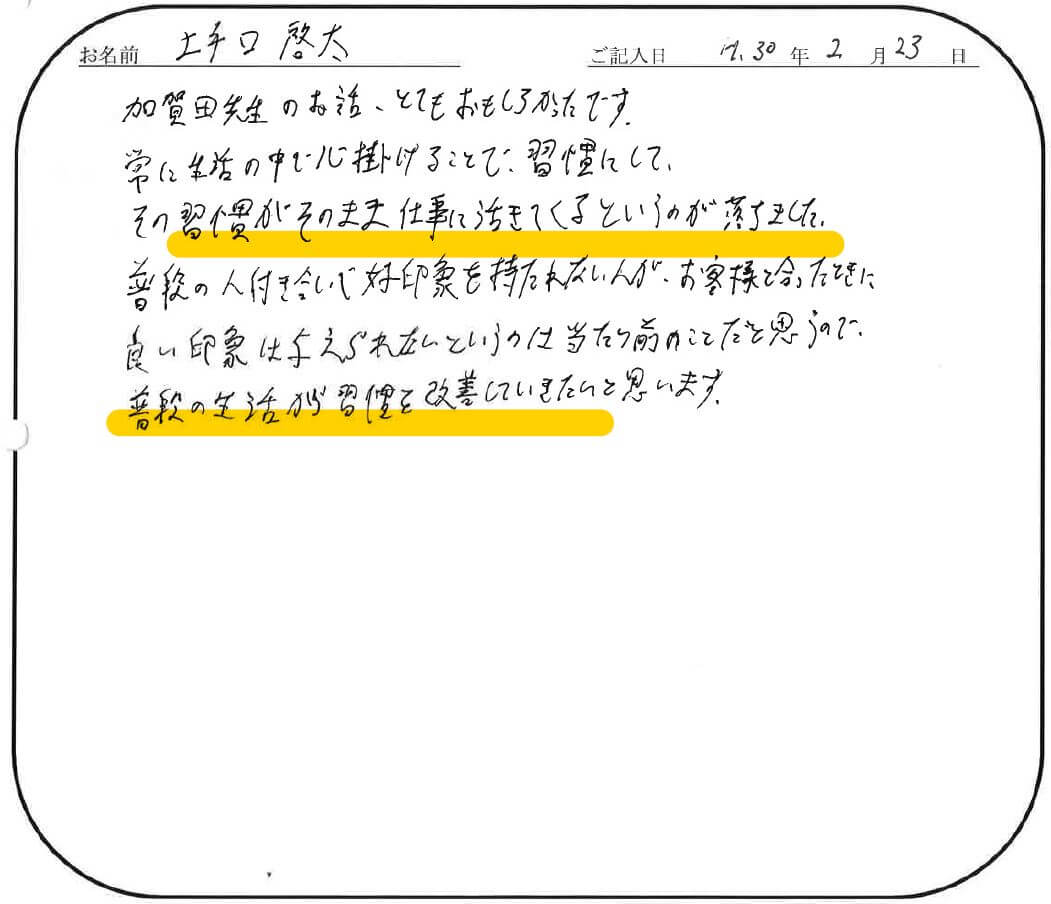 お名前 土手口 啓太 ご記入日 H.30年 2月 23日
加賀田先生のお話、とてもおもしろかったです。
常に生活の中で心掛けることで、習慣にして、
その習慣がそのまま仕事に活きてくるというのが落ちました。
普段の人付き合いで好印象を持たれない人が、お客様と会ったときに
良い印象は与えられないというのは当たり前のことだと思うので、
普段の生活から習慣を改善していきたいと思います。